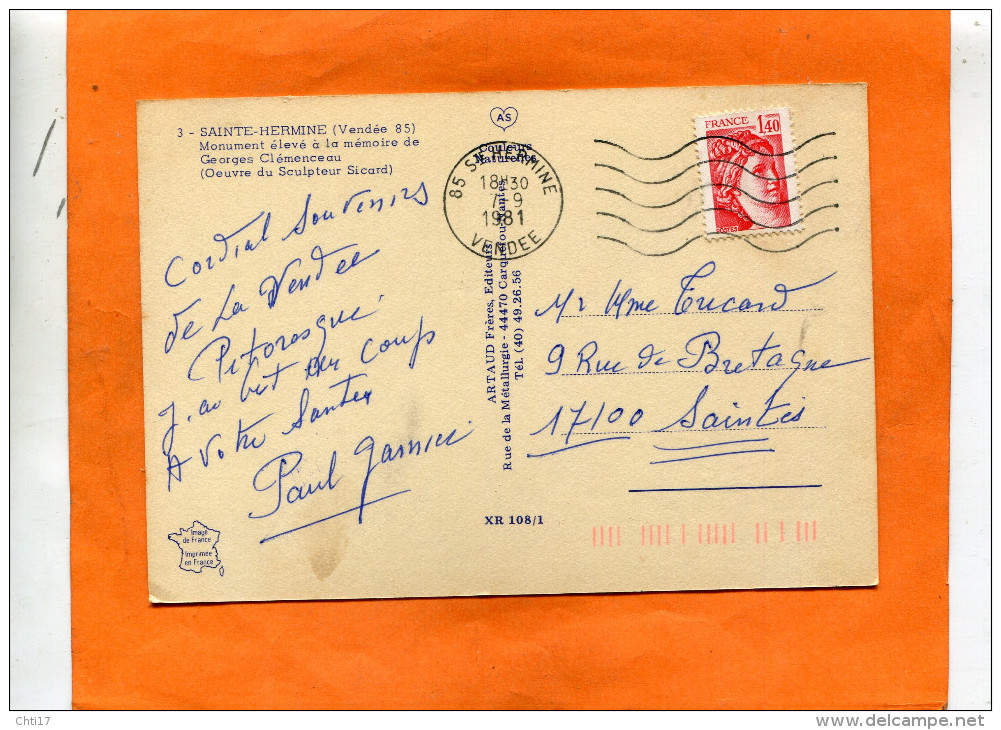 3 - SAINTE-HERMINE (Vendée 85)
Monument élevé à la mémoire de
Georges Clémenceau
(Oeuvre du Sculpteur Sicard)
Cordial Souvenirs
de La Vendée
Pitoresque
J. ai but un coup
A Votre Santée
Paul Garnier
Image
de France
Imprimée
en France
AS
Couleurs
Naturelles
85 STE HERMINE
18H30
7-9
1981
VENDEE
ARTAUD Frères, Editeurs
Rue de la Métallurgie - 44470 Carquefou-Nantes
Tél. (40) 49.26.56
XR 108/1
FRANCE
1,40
POSTES
Mr Mme Tricard
9 Rue de Bretagne
17100 Saintes
Chti17
www.delcampe.net